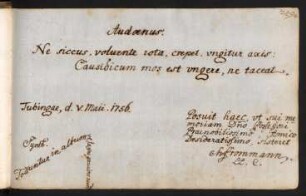 Audoenus:
Ne siccus, volvente rota, crepet, ungitur axis:
Causidicum mos est ungere, ne taceat.
Tubingae, d. V. Maii. 1756.
Posuit haec, ut sui me-
moriam Dno Possessori
Amico
Desideratissimo, sisteret
Frommann,
Symb.
in